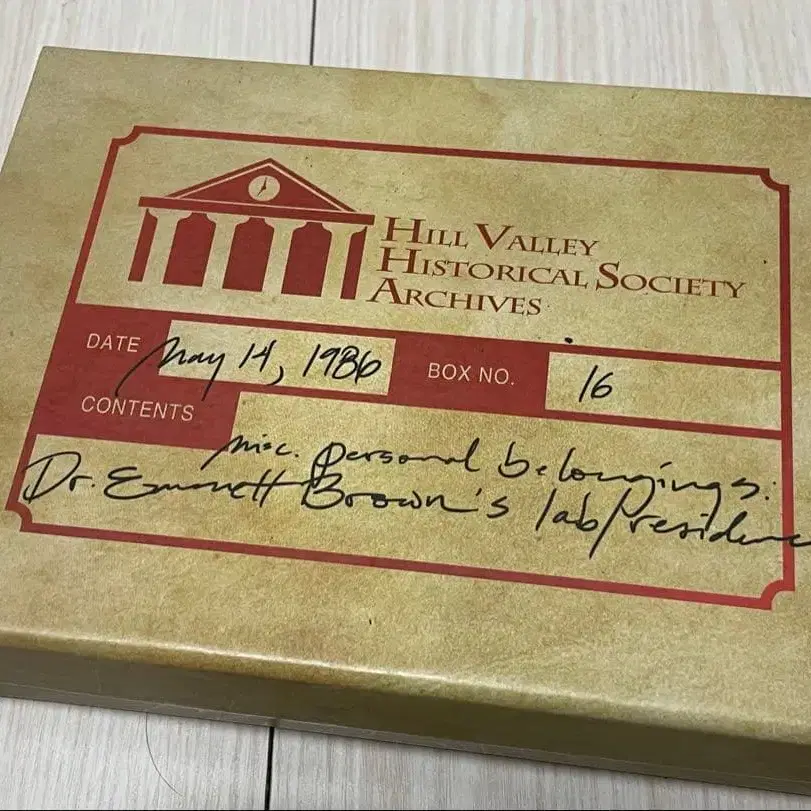 HILL VALLEY
HISTORICAL SOCIETY
ARCHIVES
DATE May 14, 1986 BOX NO. 16
CONTENTS misc. personal belongings:
Dr. Emmett Brown's lab/residence